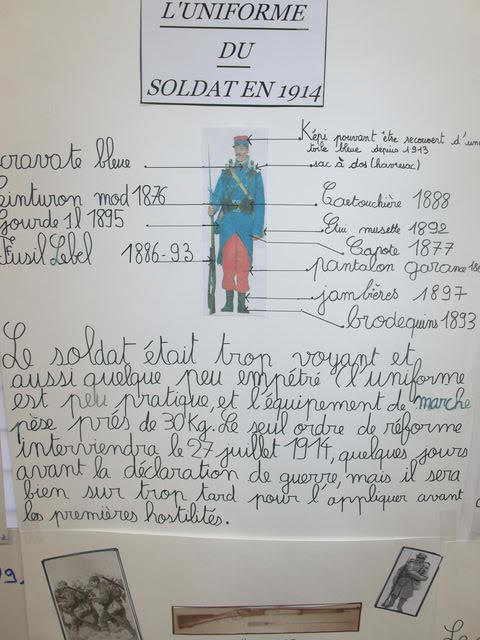 L'UNIFORME
DU
SOLDAT EN 1914
Képi pouvant être recouvert d'une
toile bleue depuis 1913
cravate bleue
sac à dos (havresac)
ceinturon mod 1876
Cartouchière 1888
Gourde 1l 1895
musette 1892
Fusil Lebel 1886-93
Capote 1877
pantalon garance
jambères 1897
brodequins 1893
Le soldat était trop voyant et
aussi quelque peu empétré (l'uniforme
est peu pratique, et l'équipement de marche
pèse près de 30kg. Le seul ordre de réforme
interviendra le 27 juillet 1914, quelques jours
avant la déclaration de guerre, mais il sera
bien sur trop tard pour l'appliquer avant
les premières hostilités.
9.
Le